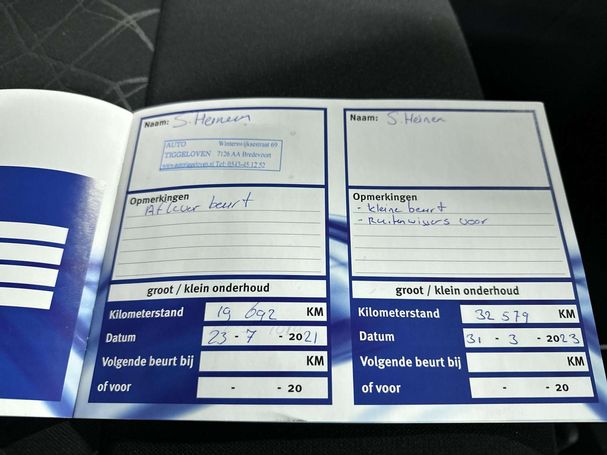 Naam: S. Heinen
AUTO Winterswijksestraat 69
TIGGELOVEN 7126 AA Bredevoort
www.autotiggeloven.nl Tel: 0543-45 12 52
Opmerkingen
Aflever beurt
groot / klein onderhoud
Kilometerstand 19 692 KM
Datum 23 - 7 - 2021
Volgende beurt bij KM
of voor - - 20
Naam: S. Heinen
Opmerkingen
- kleine beurt
- Ruitenwissers voor
groot / klein onderhoud
Kilometerstand 32 579 KM
Datum 31 - 3 - 2023
Volgende beurt bij KM
of voor - - 20